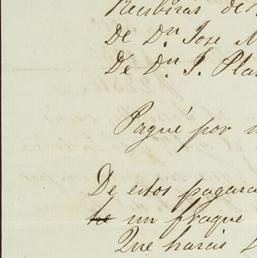 Recibiras de
De Dn Jose M
De Dn J. Pla
Pagué por
De estos pagara
he un fraque
Que harais